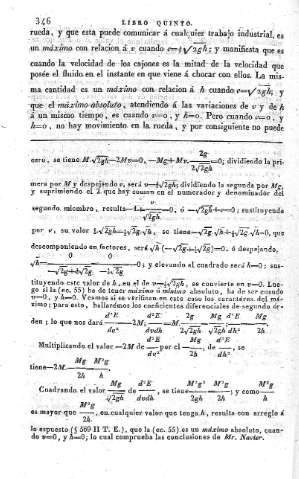 346 LIBRO QUINTO.
rueda, y que esta puede comunicar á cualquier trabajo industrial, es
un máximo con relacion á v cuando v=½√2gh; y manifiesta que es
cuando la velocidad de los cajones es la mitad de la velocidad que
posée el fluido en el instante en que viene á chocar con ellos. La mis-
ma cantidad es un máximo con relacion á h cuando v=√2gh; y
que el máximo absoluto, atendiendo á las variaciones de v y de h
á un mismo tiempo, es cuando v=0, y h=0. Pero cuando v=0, y
h=0, no hay movimiento en la rueda, y por consiguiente no puede
cero, se tiene M.√2gh—2Mv=0, —Mg+Mv. 2g/2√2gh =0; dividiendo la pri-
mera por M y despejando v, será v=½√2gh; dividiendo la segunda por Mg,
y suprimiendo el 2 que hay comun en el numerador y denominador del
segundo miembro, resulta
v, su valor
descomponiendo en factores, será
=0; y elevando al cuadrado será h=0; sus-
tituyendo este valor de h, en el de v=½√2gh, se convierte en v=0. Lue-
go si la (ec. 55) ha de tener máximo ó mínimo absoluto, ha de ser cuando
v=0, y h=0. Veamos si se verifican en este caso los caractéres del má-
ximo; para esto, hallarémos los coeficientes diferenciales de segundo ór-
den; lo que nos dará
Multiplicando el valor —2M de d²E/dv² por el —Mg/2h de d²E/dh², se
tiene—2M.
Cuadrando el valor Mg/√2gh de d²E/dvdh, se tiene M²g²/2gh = M²g/2h; y como M²g/h
es mayor que M²g/2h, en cualquier valor que tenga h, resulta con arreglo á
lo espuesto (§ 569 II T. E.), que la (ec. 55) es un máximo absoluto, cuan-
do v=0, y h=0; lo cual comprueba las conclusiones de Mr. Navier.